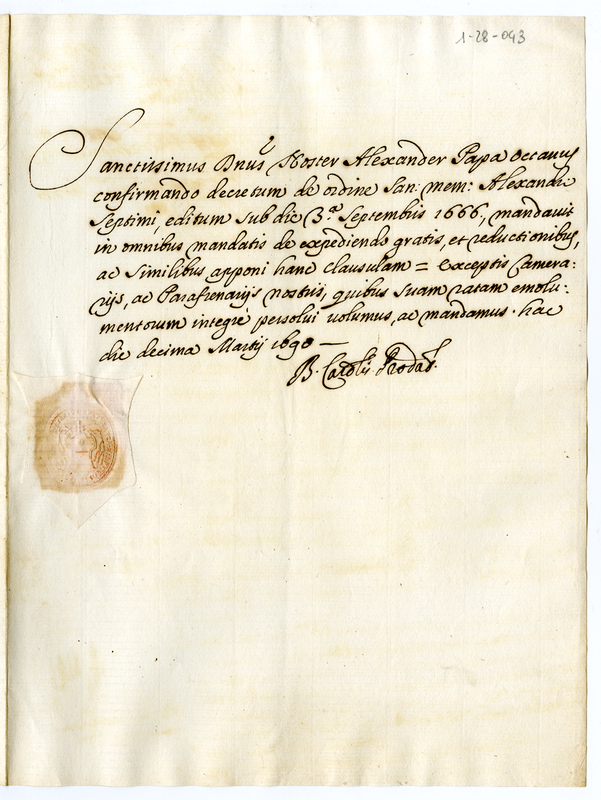 1-28-043
Sanctissimus Dnūs Noster Alexander Papa Octauus
confirmando decretum de ordine San: mem: Alexandri
Septimi, editum sub die 3.ª Septembris 1666., mandauit
in omnibus mandatis de expediendo gratis, et reductionibus,
ac similibus apponi hanc clausulam = exceptis Camera:
rijs, ac Parafrenarijs nostris, quibus suam ratam emolu:
mentorum integrè persolui uolumus, ac mandamus. hac
die decima Martij 1690 —
B. Prodat.